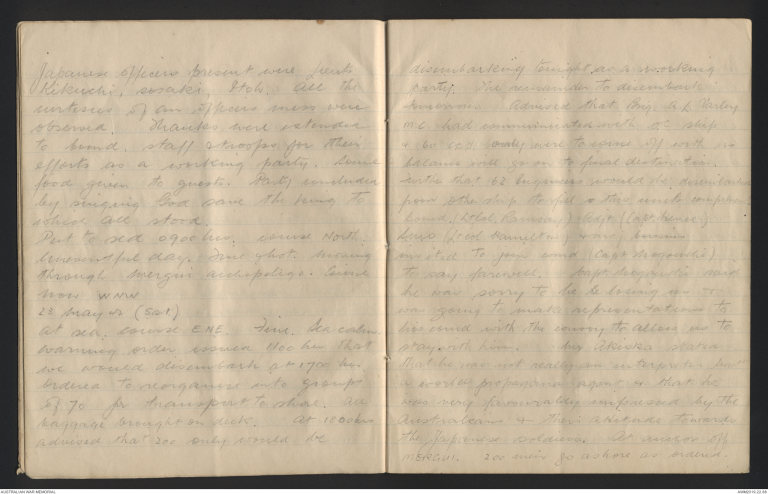 Japanese officers present were Lieuts
Kikuchi, Sosaki, Itoh. All the
curtesies of an officers mess were
observed. Thanks were extended
to comd. staff & troops for their
efforts as a working party. Some
food given to guests. Party concluded
by singing God save the King to
which all stood.
Put to sea 0900 hrs. course North.
Uneventful day. Fine & hot. Moving
through Mergui archipelago. Course
now WNW
23 May 42 (Sat.)
At sea. course ENE. Fine. Sea calm.
Warning order issued 1100 hrs that
we would disembark at 1700 hrs.
Ordered to reorganise into groups
of 70 for transport to shore. All
baggage brought on deck. At 1800 hrs
advised that 200 only would be
disembarking tonight as a working
party. The remainder to disembark
tomorrow. Advised that Brig. A L Varley
M.C. had communicated with OC ship
only were to come off with us
balance will go on to final destination.
that 62 Engineers would be disembarked
from other ship to fill this unit
comd (Lt Col. Ramsay) Adjt (Capt.
(Lt Col Hamilton)
invited to join comd (Capt
to say farewell. Capt said
he was sorry to be losing us &
was going to make representations to
his comd with the convoy to allow us to
stay with him. stated
that he was not really an interpreter but
a world propaganda agent & that he
was very favourably impressed by the
Australians & their attitude towards
the Japanese soldiers. At anchor off
MERGUI. 200 men go ashore as ordered.
AUSTRALIAN WAR MEMORIAL